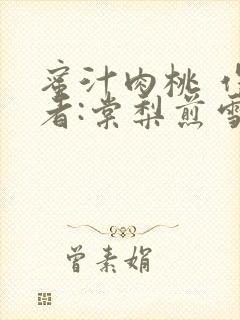 蜜汁肉桃 作
者:棠梨煎雪
曾素娟